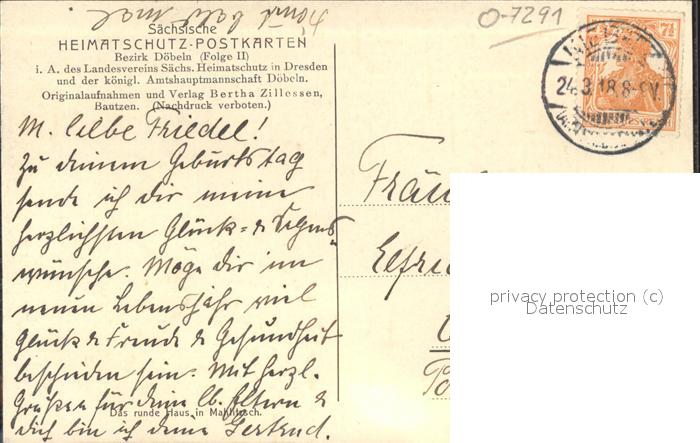 O-7291
Sächsische
HEIMATSCHUTZ-POSTKARTEN
Bezirk Döbeln (Folge II)
i. A. des Landesvereins Sächs. Heimatschutz in Dresden
und der königl. Amtshauptmannschaft Döbeln.
Originalaufnahmen und Verlag Bertha Zillessen,
Bautzen. (Nachdruck verboten.)
24.3.18.8-9V.
7½
M. liebe Friedel!
Zu deinem Geburtstag
sende ich dir meine
herzlichsten Glück- & Segens
wünsche. Möge dir im
neuen Lebensjahr viel
Glück & Freude & Gesundheit
beschieden sein. Mit herzl.
Grüßen für deine lb. Eltern &
Das runde Haus in Mahlitzsch.
dich bin ich deine Gertrud.
Fräu
Elfrie
privacy protection (c)
Datenschutz